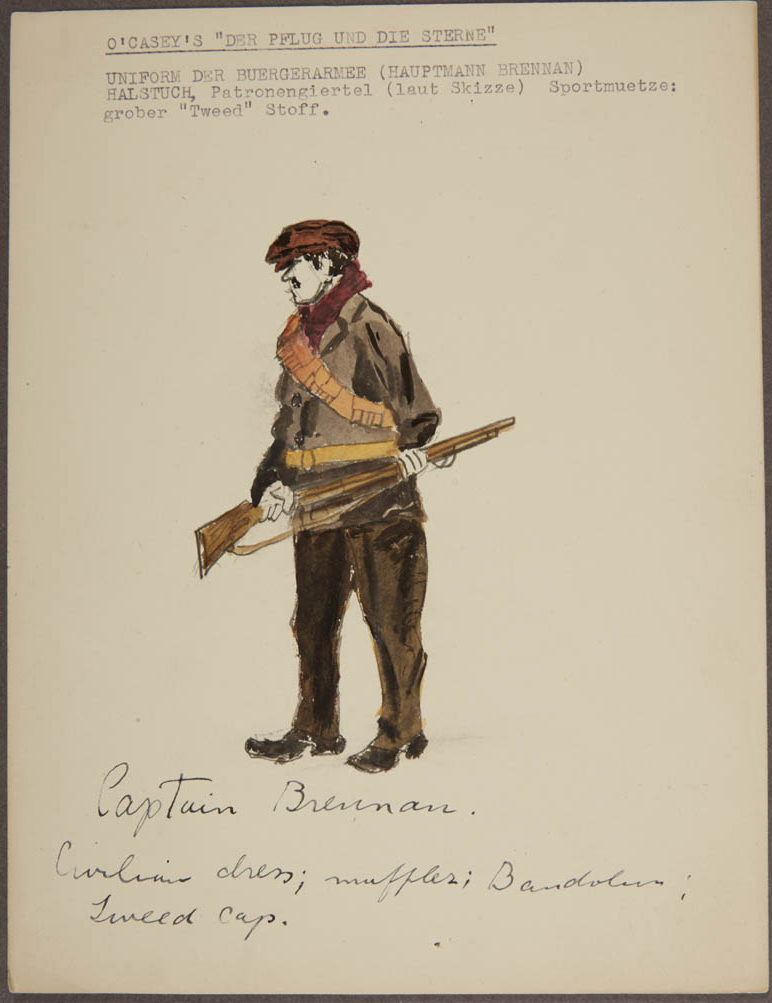 O'CASEY'S "DER PFLUG UND DIE STERNE"
UNIFORM DER BUERGERARMEE (HAUPTMANN BRENNAN)
HALSTUCH, Patronengiertel (laut Skizze) Sportmuetze:
grober "Tweed" Stoff.
Captain Brennan.
Civilian dress; muffler; Bandolier;
Tweed cap.